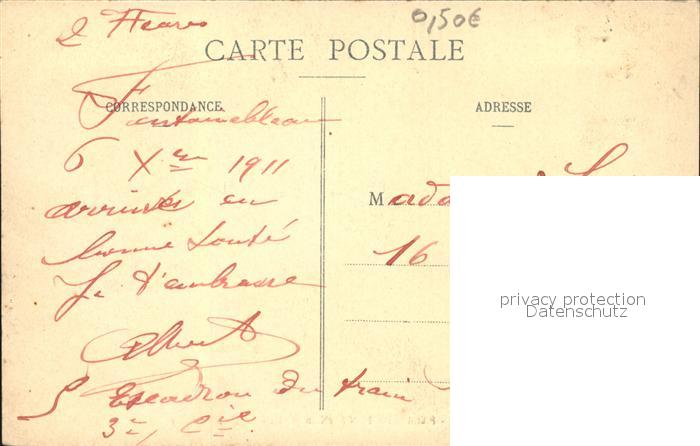 2 Heures
0,50€
CARTE POSTALE
CORRESPONDANCE
ADRESSE
Fontainebleau
6 Xre 1911
arrivés en
bonne santé
Je t'embrasse
Albert
5 Escadron du train
3e, Cie
Mada
16
privacy protection
Datenschutz